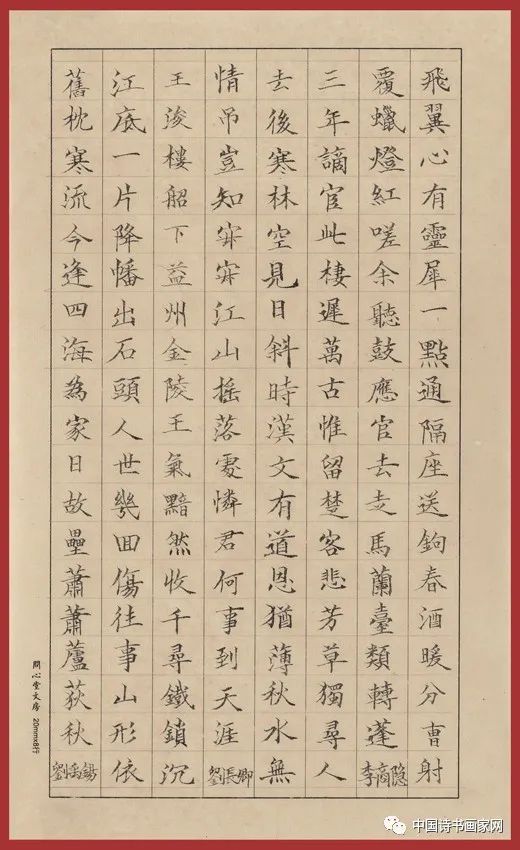 飛翼心有靈犀一點通隔座送鉤春酒暖分曹射
覆蠟燈紅嗟余聽鼓應官去走馬蘭臺類轉蓬李商隐
三年謫宦此棲遲萬古惟留楚客悲芳草獨尋人
去後寒林空見日斜時漢文有道恩猶薄秋水無
情吊豈知寂寂江山搖落處憐君何事到天涯劉長卿
王浚樓船下益州金陵王氣黯然收千尋鐵鎖沉
江底一片降幡出石頭人世幾囬傷往事山形依
舊枕寒流今逢四海為家日故壘蕭蕭蘆荻秋劉禹錫
開心堂文房 20mmx8行
中国诗书画家网